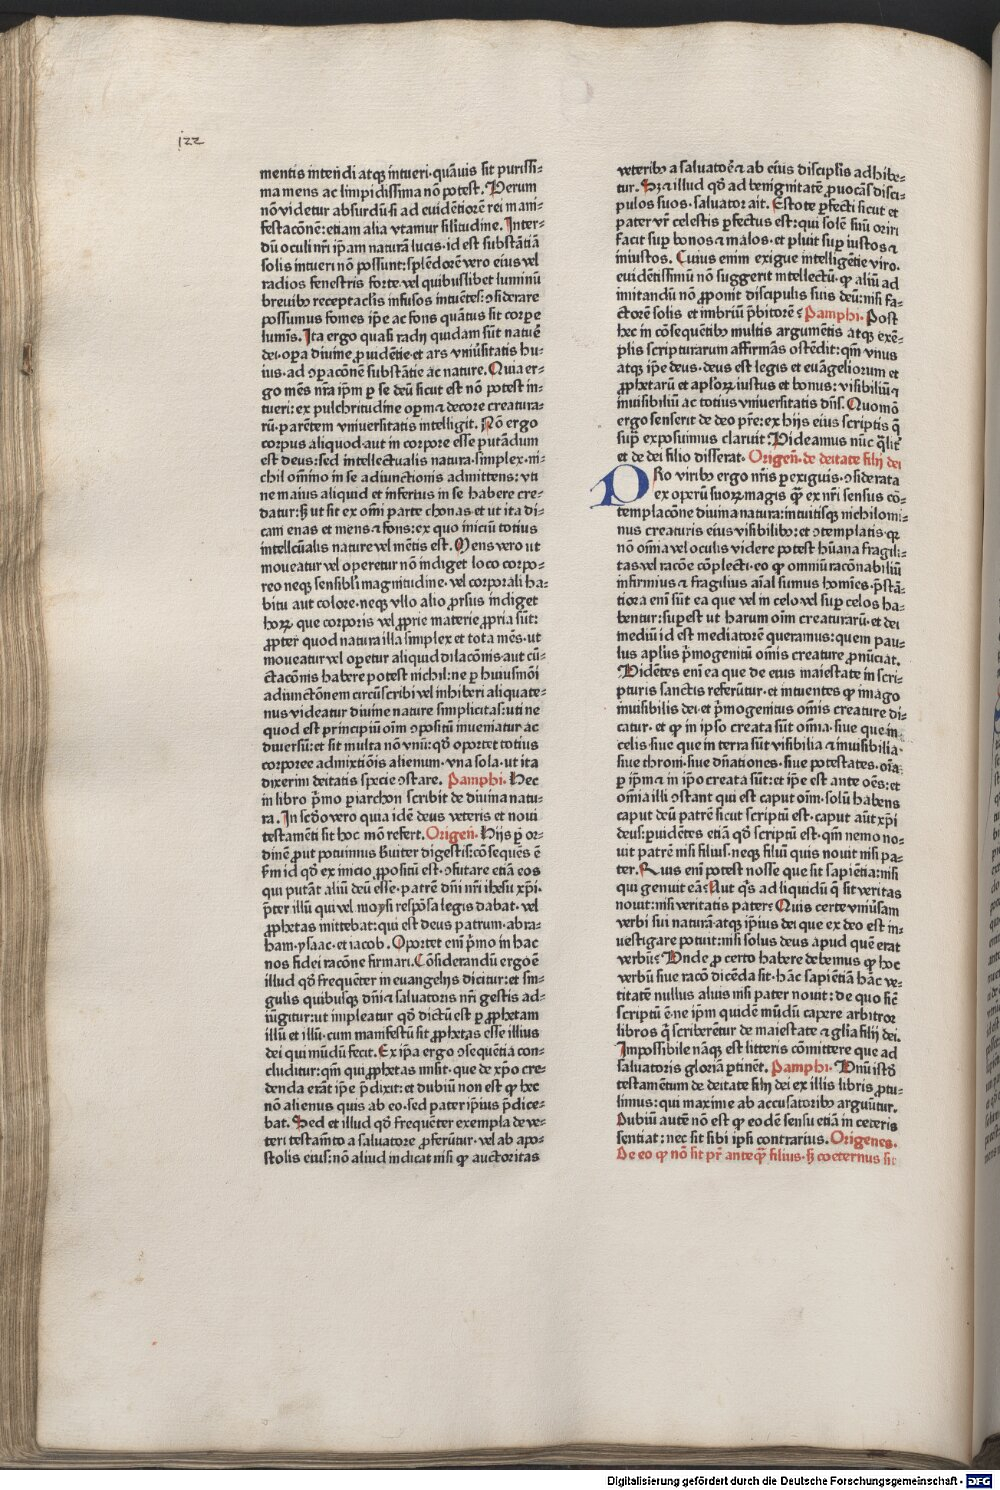 122
mentis intendi atqꝫ intueri·quāuis sit purissi⸗
ma mens ac limpidissima nō potest. Verum
nō videtur absurdū·si ad euidētiorē rei mani⸗
festacōnē:etiam alia vtamur silitudine. Inter⸗
dū oculi nr̄i ip̄am naturā lucis·id est substātiā
solis intueri nō possunt:splēdorē vero eius vel
radios fenestris forte·vel quibuslibet luminū
breuibꝫ receptaclis infusos intuētes:ꝯsiderare
possumus fomes ip̄e ac fons quātus sit corpe
lumīs. Ita ergo quasi radij quidam sūt natuē
dei·oꝑa diuine ꝓuidētie·et ars vniūsitatis hu⸗
ius·ad ꝯꝑacōnē substātie ac nature. Quia er⸗
go mēs nr̄a ip̄m ꝑ se deū sicut est nō potest in⸗
tueri:ex pulchritudine oꝑm ⁊ decore creatura⸗
rū·parētem vniuersitatis intelligit. Nō ergo
corpus aliquod·aut in corpore esse putādum
est deus:sed intellectualis natura·simplex·ni⸗
chil om̄ino in se adiunctionis admittens: vti
ne maius aliquid et inferius in se habere cre⸗
datur:s̄ ut sit ex om̄i parte ꝯonas·et ut ita di⸗
cam enas et mens ⁊ fons:ex quo iniciū totius
intellcūalis nature vel mētis est. Mens vero ut
moueatur vel operetur nō indiget loco corpo⸗
reo neqꝫ sensibli magnitudine·vel corporali ha⸗
bitu aut colore·neqꝫ vllo alio ꝓrsus indiget
hoꝝ que corporis vel ꝓprie materie ꝓpria sūt:
ꝓpter quod natura illa simplex et tota mēs·ut
moueatur vel oꝑetur aliquid dilacōnis·aut cū⸗
ctacōnis habere potest nichil:ne ꝑ huiusmōi
adiunctōnem circūscribi vel inhiberi aliquate⸗
nus videatur diuine nature simplicitas:uti ne
quod est principiū oīm ꝯpositū inueniatur ac
diuersū:et sit multa nō vnū:qd̄ oportet totius
corporee admixtiōis alienum·vna sola·ut ita
dixerim deitatis specie ꝯstare. Pamphi· Hec
in libro p̄mo ꝑiarchon scribit de diuina natu⸗
ra. In scd̄o vero quia idē deus veteris et noui
testamēti sit hoc mō refert. Origen̄. Hijs ꝑ or⸗
dinē ꝓut potuimus b̄uiter digestis:cōsequēs ē
s̄m id qd̄ ex inicio ꝓpositū est·ꝯfutare etiā eos
qui putāt aliū deū esse·patrē dn̄i nr̄i ihesu xp̄i·
p̄ter illū qui vel moysi respōsa legis dabat·vel
ꝓphetas mittebat:qui est deus patrum·abra⸗
ham·ysaac·et iacob. Oportet eni p̄mo in hac
nos fidei racōne firmari. Cōsiderandū ergo ē
illud qd̄ frequēter in euangelijs dicitur:et sin⸗
gulis quibusqꝫ dn̄i ⁊ saluatoris nr̄i gestis ad⸗
iūgitur:ut impleatur qd̄ dictū est ꝑ ꝓphetam
illū et illū·cum manifestū sit ꝓphetas esse illius
dei qui mūdū fecit. Ex ip̄a ergo ꝯsequētia con⸗
cluditur:qm̄ qui ꝓphetas misit·que de xp̄o cre⸗
denda erāt ip̄e p̄dixit:et dubiū non est ꝙ hec
nō alienus quis ab eo·sed pater ip̄ius p̄dice⸗
bat. Sed et illud qd̄ frequēter exempla de ve⸗
teri testam̄to a saluatore ꝓferūtur·vel ab apo⸗
stolis eius:nō aliud indicat nisi ꝙ auctoritas
veteribꝫ a saluatoē ⁊ ab eius disciplis adhibe⸗
tur. Hꝫ ⁊ illud qd̄ ad benignitatē ꝓuocās disci⸗
pulos suos·saluator ait. Estote ꝑfecti sicut et
pater vr̄ celestis ꝑfectus est:qui solē suū oriri
facit suꝑ bonos ⁊ malos·et pluit suꝑ iustos ⁊
iniustos. Cuius enim exigue intelligētie viro·
euidētissimū nō suggerit intellectū·ꝙ aliū ad
imitandū nō ꝓponit discipulis suis deū:nisi fa⸗
ctorē solis et imbriū p̄bitorē? Pamphi· Post
hec in cōsequētibꝫ multis argumētis atqꝫ exē⸗
plis scripturarum affirmās ostēdit:qm̄ vnus
atqꝫ ip̄e deus·deus est legis et euāgeliorum et
ꝓphetarū et apl̄oꝝ iustus et bonus: visibiliū ⁊
inuisibiliū ac totius vniuersitatis dn̄s. Quomō
ergo senserit de deo pr̄e:ex hijs eius scriptis q̄
suꝑ exposuimus claruit: Videamus nūc q̄lit̄
et de dei filio disserat. Origen̄. de deitate filij dei
PRo viribꝫ ergo nr̄is ꝑexiguis·ꝯsiderata
ex operū suoꝝ magis q̄ꝫ ex nr̄i sensus cō⸗
templacōne diuina natura:intuitisqꝫ nichilomi⸗
nus creaturis eius visibilibꝫ:et ꝯtemplatis·qꝛ
nō om̄ia vel oculis videre potest hūana fragili⸗
tas vel racōe cōplecti·eo ꝙ omniū racōnabiliū
infirmius ⁊ fragilius aīal sumus homīes·p̄stā⸗
tiora eni sūt ea que vel in celo vel suꝑ celos ha⸗
bentur:suꝑest ut harum oīm creaturarū·et dei
mediū id est mediatorē queramus:quem pau⸗
lus apl̄us p̄mogenitū om̄is creature ꝓnūciat.
Vidētes eni ea que de eius maiestate in scri⸗
pturis sanctis referūtur·et intuentes ꝙ imago
inuisibilis dei·et p̄mogenitus om̄is creature di⸗
catur·et ꝙ in ipso creata sūt om̄ia·siue que in
celis siue que in terra sūt visibilia ⁊ inuisibilia·
siue throni·siue dn̄ationes·siue potestates·oīa
ꝑ ip̄m ⁊ in ip̄o creata sūt:et ip̄e est ante oēs:et
om̄ia illi ꝯstant qui est caput oīm·solū habens
caput deū patrē sicut scriptū est·caput aūt xp̄i
deus:ꝑuidētes etiā qd̄ scriptū est·qm̄ nemo no⸗
uit patrē nisi filius·neqꝫ filiū quis nouit nisi pa⸗
ter. Quis eni potest nosse que sit sapiētia:nisi
qui genuit eā? Aut q̄s ad liquidū q̄ sit veritas
nouit:nisi veritatis pater? Quis certe vniūsam
verbi sui naturā·atqꝫ ip̄ius dei que ex deo est in⸗
uestigare potuit:nisi solus deus apud quē erat
verbū? Unde ꝓ certo habere debemus ꝙ hoc
verbū siue racō dicēda sit·hāc sapiētiā hāc ve⸗
titatē nullus alius nisi pater nouit: de quo sīc
scriptū ē·ne ip̄m quidē mūdū capere arbitror
libros q̄ scriberētur de maiestate ⁊ gl̄ia filij dei.
Impossibile nāqꝫ est litteris cōmittere que ad
saluatoris gloriā ꝑtinēt. Pamphi· Unū istō
testamētum de deitate filij dei ex illis libris ꝓtu⸗
limus: qui maxime ab accusatoribꝫ arguūtur.
Dubiū autē nō est ꝙ eodē sensu etiā in ceteris
sentiat: nec sit sibi ipsi contrarius. Origenes.
De eo ꝙ nō sit pr̄ ante q̄ꝫ filius·s̄ coeternus sit
Digitalisierung gefördert durch die Deutsche Forschungsgemeinschaft - DFG